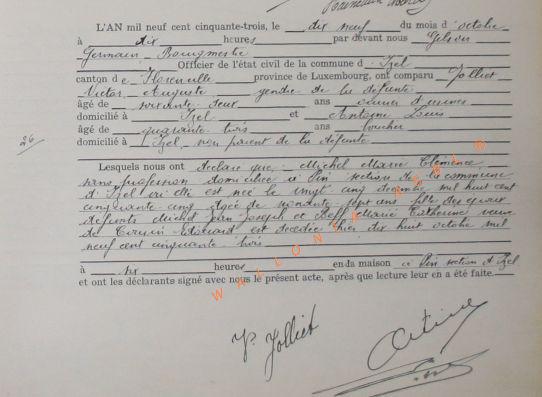 L'AN mil neuf cent cinquante-trois, le dix neuf du mois d'octobre
à dix heures par devant nous Gilson
Germain Bourgmestre
Officier de l'état civil de la commune d'Izel
canton de Florenville province de Luxembourg, ont comparu Jolliet
Victor Auguste gendre de la défunte
âgé de soixante deux ans ouvrier d'usines
domicilié à Izel et Antoine Louis
âgé de quarante trois ans boucher
domicilié à Izel, non parent de la défunte
26
Lesquels nous ont déclaré que Michel Marie Clémence
sans profession domiciliée à Pin section de la commune
d'Izel où elle est née le vingt cinq décembre mil huit cent
cinquante cinq âgée de nonante sept ans fille des époux
défunts Michel Jean Joseph et Catherine veuve
de Edouard est décédée hier dix huit octobre mil
neuf cent cinquante trois
à six heures en sa maison à Pin section d'Izel
et ont les déclarants signé avec nous le présent acte, après que lecture leur en a été faite.
V. Jolliet